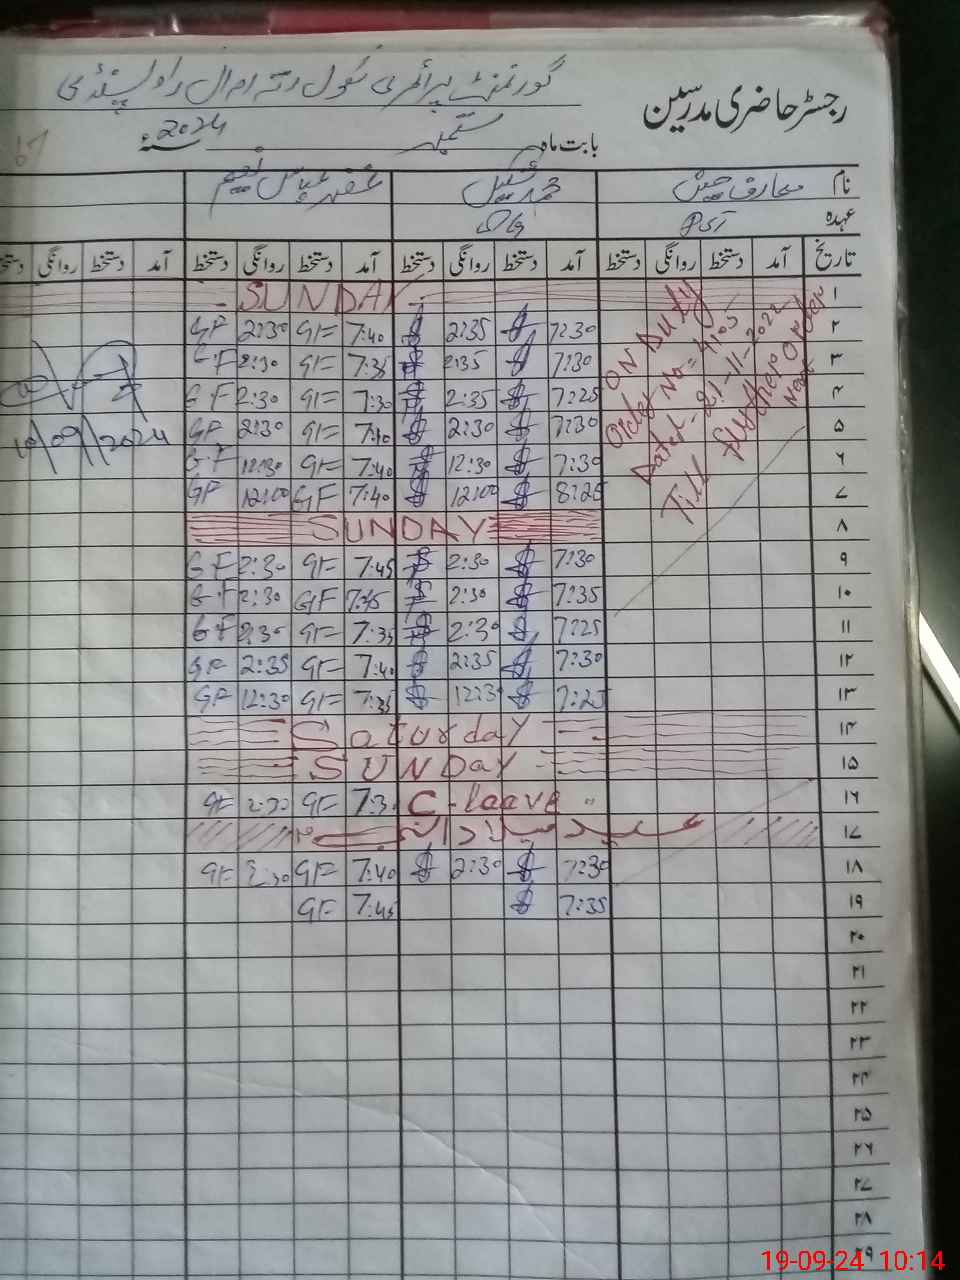 رجسٹر حاضری مدرسین
گورنمنٹ پرائمری سکول رتہ امرال راولپنڈی
بابت ماہ ستمبر سنہ 2024
نام معارف حسین محمد شکیل غضنفر عباس نعیم
عہدہ
تاریخ آمد دستخط روانگی دستخط آمد دستخط روانگی دستخط آمد دستخط روانگی دستخط آمد دستخط روانگی دستخط
۱ SUNDAY
۲ 7:30 2:35 7:40 GF 2:30 GF
۳ 7:30 2:35 7:35 GF 2:30 GF
۴ 7:25 2:35 7:30 GF 2:30 GF
۵ 7:30 2:30 GF 2:30 GF
۶ 7:30 12:30 7:40 GF 12:30 GF
۷ 8:25 12:00 7:40 GF 12:00 GF
ON Duty
Order No= 4105
Dated- 21-11-2022
Till further Order
Next
10/09/2024
۸ SUNDAY
۹ 7:30 2:30 7:45 GF 2:30 GF
۱۰ 7:35 2:30 7:45 GF 2:30 GF
۱۱ 7:25 2:30 7:35 GF 2:30 GF
۱۲ 7:30 2:35 7:40 GF 2:35 GF
۱۳ 7:25 12:30 7:35 GF 12:30 GF
۱۴ Saturday
۱۵ SUNDay
۱۶ C-leave 7:30 GF 2:30 GF
۱۷ عید میلاد النبی
۱۸ 7:30 2:30 7:40 GF 2:30 GF
۱۹ 7:35 7:45 GF
۲۰
۲۱
۲۲
۲۳
۲۴
۲۵
۲۶
۲۷
۲۸
۲۹
19-09-24 10:14